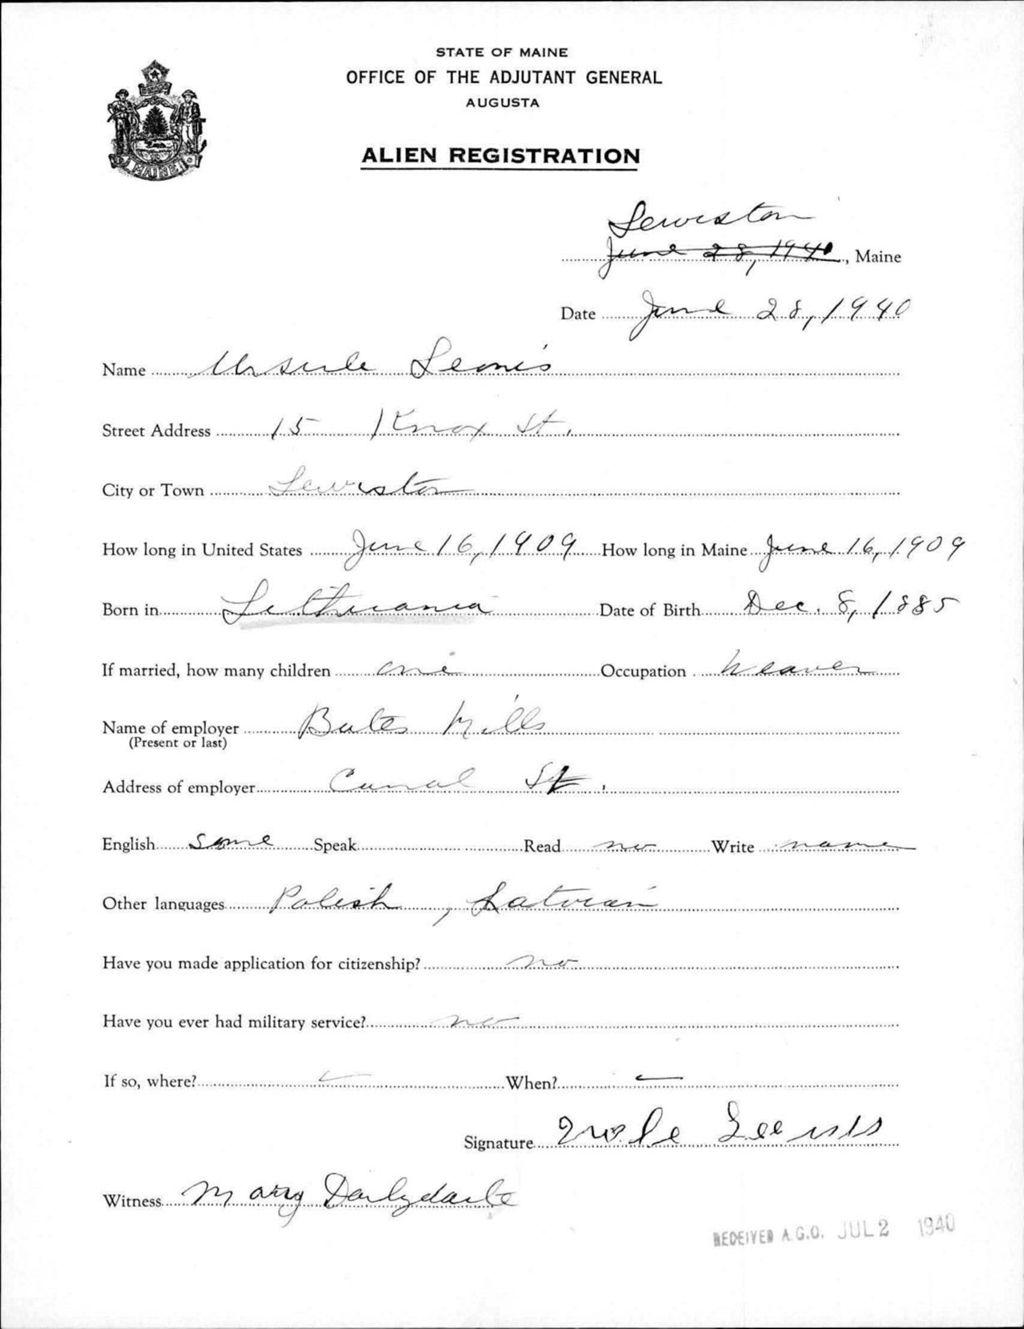 STATE OF MAINE
OFFICE OF THE ADJUTANT GENERAL
AUGUSTA
ALIEN REGISTRATION
MAINE
Lewiston
June 28, 1940, Maine
Date June 28, 1940
Name Ursule Leonis
Street Address 15 Knox St.
City or Town Lewiston
How long in United States June 16, 1909 How long in Maine June 16, 1909
Born in Lithuania Date of Birth Dec. 8, 1885
If married, how many children one Occupation Weaver
Name of employer Bates Mills
(Present or last)
Address of employer Canal St.
English some Speak Read no Write name
Other languages Polish, Latvian
Have you made application for citizenship? no
Have you ever had military service? no
If so, where? When?
Signature
Witness Mary
RECEIVED A.G.O. JUL 2 1940